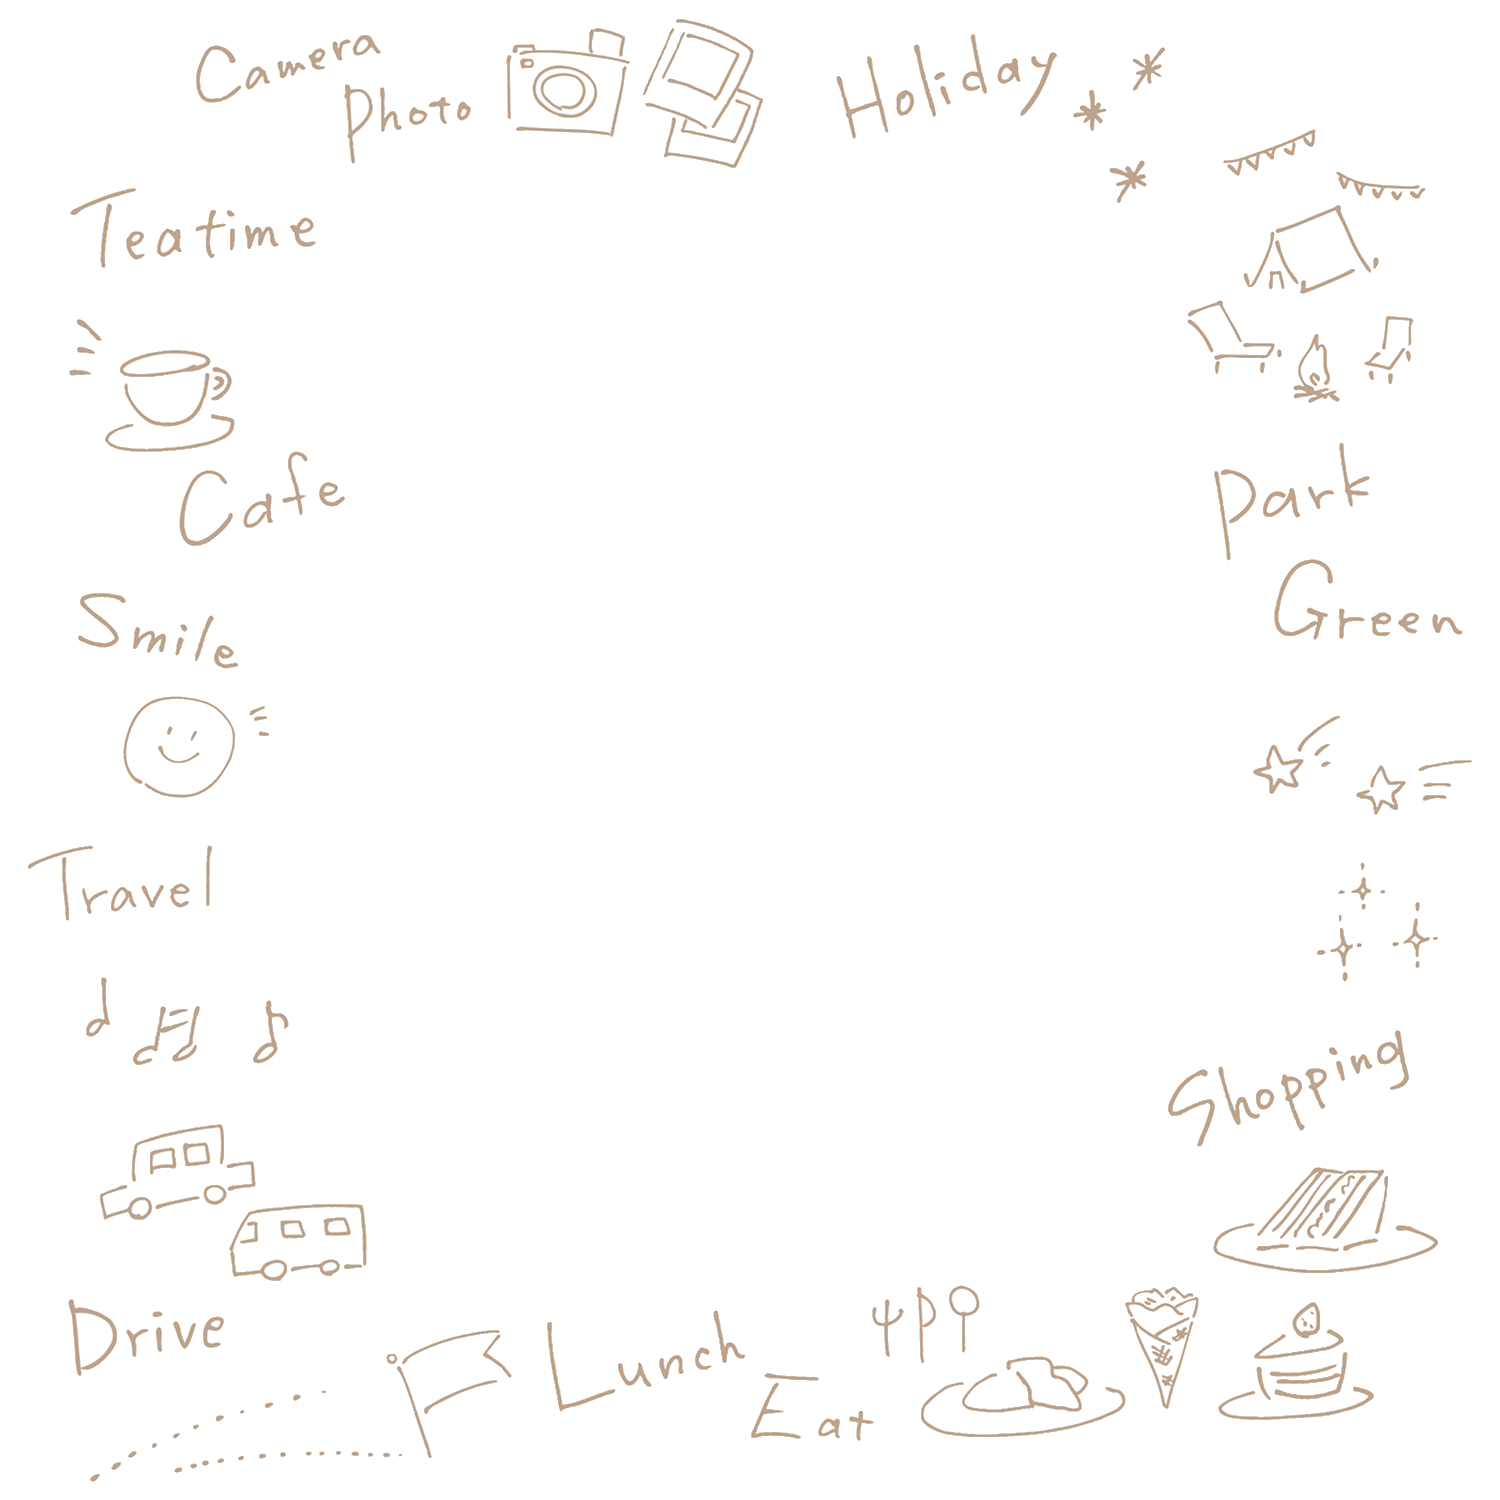 Camera
Photo
Holiday
Teatime
Cafe
Park
Green
Smile
Travel
Shopping
Drive
Lunch
Eat